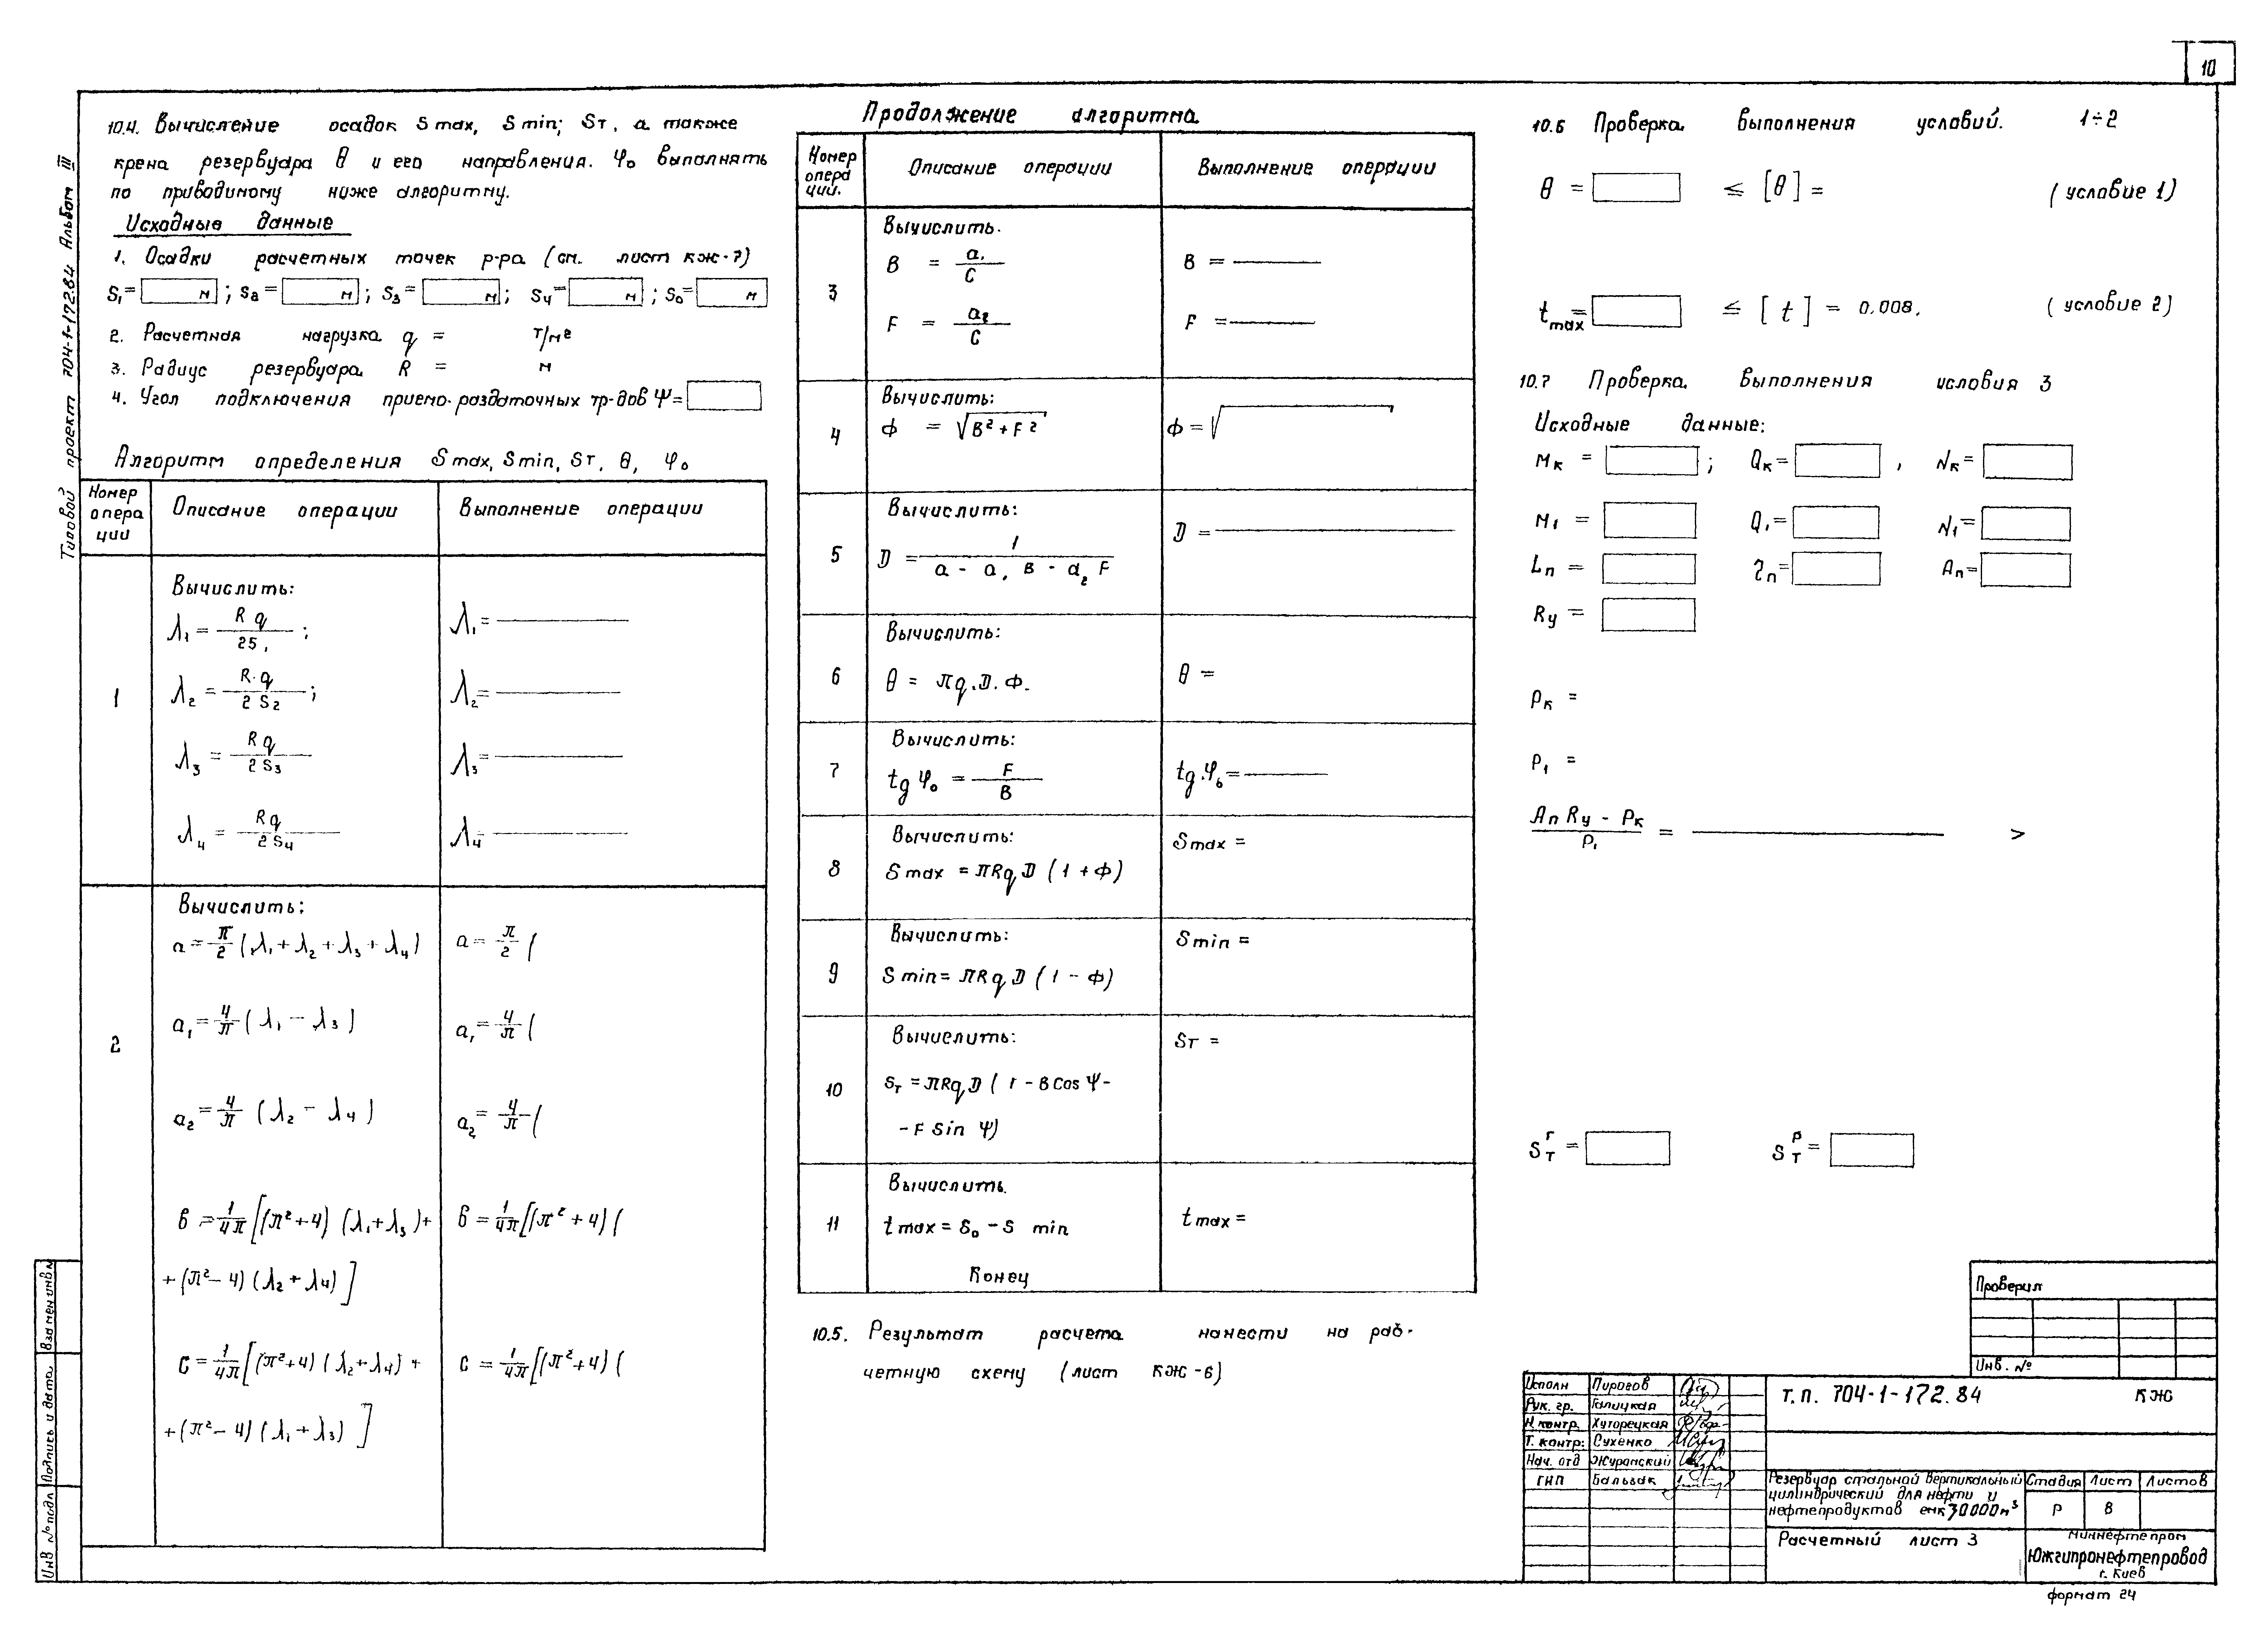 10
Типовой проект 704-1-172.84 Альбом III
10.4. Вычисление осадок S max, S min; Sт, а также
крена резервуара θ и его направления. φ₀ выполнять
по приводимому ниже алгоритму.
Исходные данные
1. Осадки расчетных точек р-ра (см. лист КЖ-7)
S₁= м ; S₂= м ; S₃= м ; S₄= м ; S₀= м
2. Расчетная нагрузка q = т/м²
3. Радиус резервуара R = м
4. Угол подключения приемо-раздаточных тр-дов Ψ=
Алгоритм определения S max, S min, Sт, θ, φ₀
Номер операции Описание операции Выполнение операции
1
Вычислить:
λ₁ = R q / 2S₁ ; λ₁ =
λ₂ = R·q / 2 S₂ ; λ₂ =
λ₃ = R q / 2 S₃ λ₃ =
λ₄ = R q / 2 S₄ λ₄ =
2
Вычислить:
a = π/2 (λ₁ + λ₂ + λ₃ + λ₄) a = π/2 (
a₁ = 4/π (λ₁ − λ₃) a₁ = 4/π (
a₂ = 4/π (λ₂ − λ₄) a₂ = 4/π (
в = 1/4π [(π² + 4) (λ₁ + λ₃) + в = 1/4π [(π² + 4) (
+ (π² − 4) (λ₂ + λ₄)]
C = 1/4π [(π² + 4) (λ₂ + λ₄) + C = 1/4π [(π² + 4) (
+ (π² − 4) (λ₁ + λ₃)]
Продолжение алгоритма
Номер операций. Описание операции Выполнение операции
3
Вычислить.
B = a₁ / C B =
F = a₂ / C F =
4
Вычислить:
Ф = √B² + F² Ф = √
5
Вычислить:
D = 1 / a − a₁ B − a₂ F D =
6
Вычислить:
θ = πq.D.Ф. θ =
7
Вычислить:
tg φ₀ = F / B tg φ₀ =
8
Вычислить:
S max = πRqD (1 + Ф) S max =
9
Вычислить:
S min = πRqD (1 − Ф) S min =
10
Вычислить:
Sт = πRqD (1 − B Cos Ψ − Sт =
− F Sin Ψ)
11
Вычислить.
t max = S₀ − S min t max =
Конец
10.5. Результат расчета нанести на рас-
четную схему (лист КЖ-6)
10.6 Проверка выполнения условий. 1÷2
θ = ≤ [θ] = (условие 1)
t max = ≤ [t] = 0.008. (условие 2)
10.7 Проверка выполнения условия 3
Исходные данные:
Mк = ; Qк = , Nк =
M₁ = Q₁ = N₁ =
Lп = Zп = Aп =
Ry =
Pк =
P₁ =
Aп Ry − Pк / P₁ = >
Sтᴦ = Sтᵖ =
Проверил
Инв. №
Исполн Пирогов
Рук. гр. Галицкая
Н. контр. Хуторецкая
Т. контр: Сухенко
Нач. отд Журонский
ГИП Бальзак
Т.П. 704-1-172.84 КЖ
Резервуар стальной вертикальный
цилиндрический для нефти и
нефтепродуктов емк 30000м³
Стадия Лист Листов
Р 8
Расчетный лист 3
Миннефтепром
Южгипронефтепровод
г. Киев
формат 24
Инв № подл Подпись и дата Взамен инв №